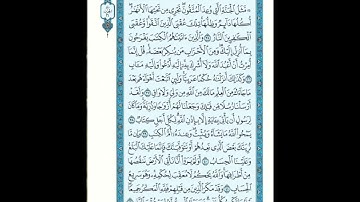 ۞ مَّثَلُ ٱلْجَنَّةِ ٱلَّتِي وُعِدَ ٱلْمُتَّقُونَ تَجْرِي مِن تَحْتِهَا ٱلْأَنْهَٰرُ
أُكُلُهَا دَآئِمٌ وَظِلُّهَا تِلْكَ عُقْبَى ٱلَّذِينَ ٱتَّقَوا۟ وَّعُقْبَى
ٱلْكَٰفِرِينَ ٱلنَّارُ ٣٥ وَٱلَّذِينَ ءَاتَيْنَٰهُمُ ٱلْكِتَٰبَ يَفْرَحُونَ
بِمَآ أُنزِلَ إِلَيْكَ وَمِنَ ٱلْأَحْزَابِ مَن يُنكِرُ بَعْضَهُۥ قُلْ إِنَّمَآ
أُمِرْتُ أَنْ أَعْبُدَ ٱللَّهَ وَلَآ أُشْرِكَ بِهِۦٓ إِلَيْهِ أَدْعُوا۟ وَإِلَيْهِ مَـَٔابِ
٣٦ وَكَذَٰلِكَ أَنزَلْنَٰهُ حُكْمًا عَرَبِيًّا وَلَئِنِ ٱتَّبَعْتَ أَهْوَآءَهُم بَعْدَ
مَا جَآءَكَ مِنَ ٱلْعِلْمِ مَا لَكَ مِنَ ٱللَّهِ مِن وَلِيٍّ وَلَا وَاقٍ ٣٧ وَلَقَدْ
أَرْسَلْنَا رُسُلًا مِّن قَبْلِكَ وَجَعَلْنَا لَهُمْ أَزْوَٰجًا وَذُرِّيَّةً وَمَا كَانَ
لِرَسُولٍ أَن يَأْتِيَ بِـَٔايَةٍ إِلَّا بِإِذْنِ ٱللَّهِ لِكُلِّ أَجَلٍ كِتَابٌ ٣٨
يَمْحُوا۟ ٱللَّهُ مَا يَشَآءُ وَيُثْبِتُ وَعِندَهُۥٓ أُمُّ ٱلْكِتَٰبِ ٣٩ وَإِن مَّا
نُرِيَنَّكَ بَعْضَ ٱلَّذِي نَعِدُهُمْ أَوْ نَتَوَفَّيَنَّكَ فَإِنَّمَا عَلَيْكَ ٱلْبَلَٰغُ
وَعَلَيْنَا ٱلْحِسَابُ ٤٠ أَوَلَمْ يَرَوْا۟ أَنَّا نَأْتِي ٱلْأَرْضَ نَنقُصُهَا
مِنْ أَطْرَافِهَا وَٱللَّهُ يَحْكُمُ لَا مُعَقِّبَ لِحُكْمِهِۦ وَهُوَ سَرِيعُ
ٱلْحِسَابِ ٤١ وَقَدْ مَكَرَ ٱلَّذِينَ مِن قَبْلِهِمْ فَلِلَّهِ ٱلْمَكْرُ جَمِيعًا